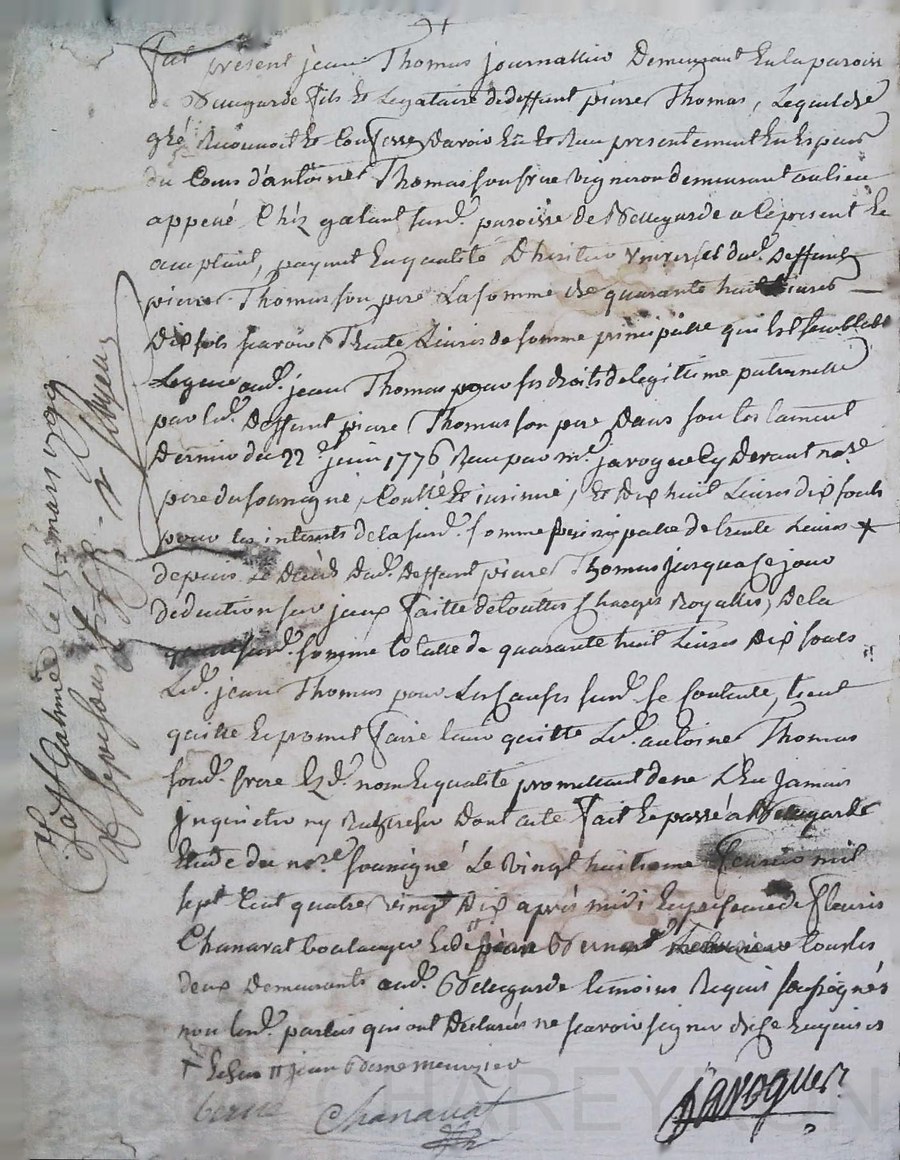 Fut présent jean Thomas journallier Demeurant En la paroisse
de Bellegarde fils Et Legataire de deffunt pierre Thomas, Lequel de
gré Reconnoit Et Confesse avoir Eu Et Reçu presentement En Espece
du Cours d'antoine Thomas son frere vigneron demeurant au lieu
appellé Chez galant surd. paroisse de Bellegarde a Ce present Et
acceptant, payant En qualité D'heritier Universel dud. Deffunt
pierre Thomas son pere La somme de quarante huit Livres
Dix sols scavoir Trente Livres de somme principalle qui Est semblable
Leguée aud. jean Thomas pour ses droits de legittime paternelle
par led. Deffunt pierre Thomas son pere Dans son testament
Dernier du 22e juin 1776 Reçu par me. jaroguer Cy Devant nore.
pere du soussigné, Contlé Et insinué, Et Dix huit Livres dix souls
pour les interests de la surd. somme principalle de trente Livres
depuis Le Décés dud. Deffunt pierre Thomas jusqua Ce jour
déduction sur jceux faitte de touttes Charges Royalles, De la
quelle surd. somme totalle de quarante huit Livres Dix souls
Led. jean Thomas pour Les Causes surd. se Contente, tient
quitte Et promet faire tenir quitte Led. antoine Thomas
sond. frere Esd. nom Et qualité promettant de ne L'En Jamais
Inquietter ny Rechercher Dont acte Fait Et passé a Bellegarde
Etude du nore. soussigné Le vingt huitieme fevrier mil
sept Cent quatre vingt Dix après midi En presence de fleuris
Chanavat boulanger Et de jean tous les
deux Demeurants aud. Bellegarde temoins Requis soussignés
non lesd. parties qui ont Declarés ne scavoir signer de ce Enquises
jean Berne meunier
berne Chanavat Jaroguer
Bellegarde le 15 mars 1790
Reçu quinze sous